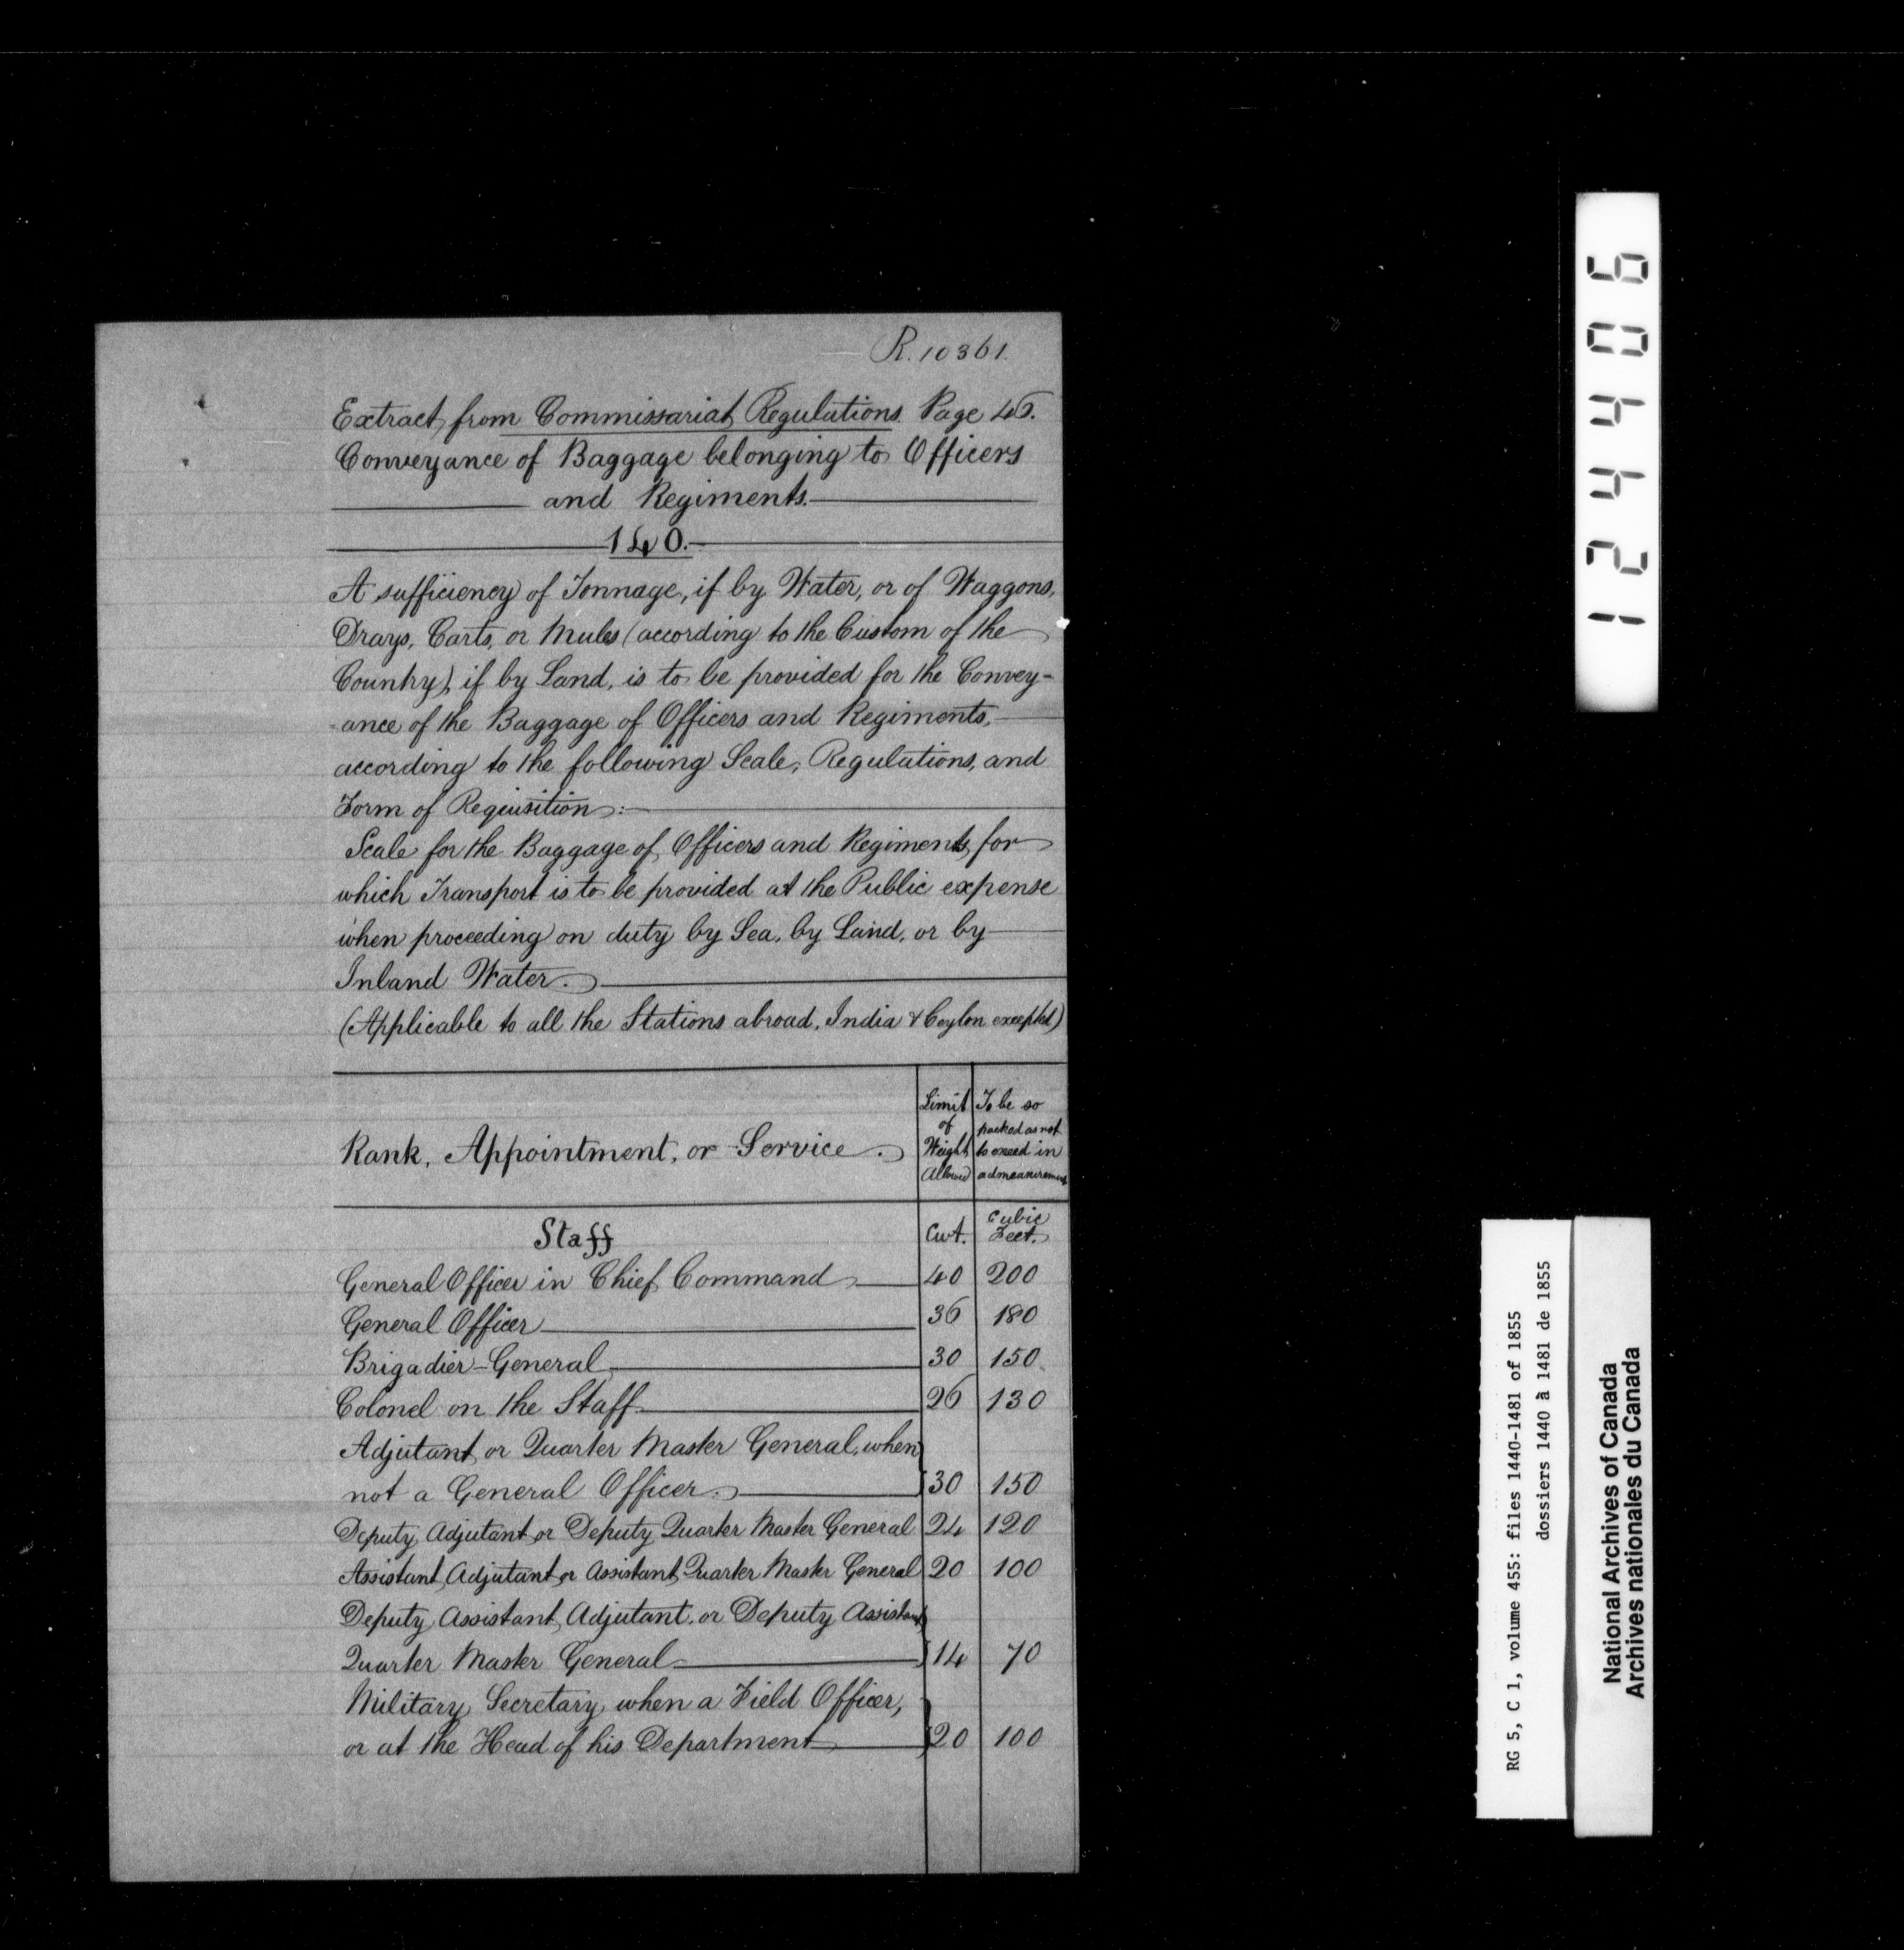 R. 10361.
Extract from Commissariat Regulations Page 45.
Conveyance of Baggage belonging to Officers
and Regiments.
140.
A sufficiency of Tonnage, if by Water, or of Waggons,
Drays, Carts, or Mules (according to the Custom of the
Country), if by Land, is to be provided for the Convey-
-ance of the Baggage of Officers and Regiments,
according to the following Scale, Regulations, and
Form of Requisition:-
Scale for the Baggage of Officers and Regiments, for
which Transport is to be provided at the Public expense
when proceeding on duty by Sea, by Land, or by
Inland Water.
(Applicable to all the Stations abroad, India & Ceylon excepted)
Rank, Appointment, or Service.
Limit of Weight Allowed
To be so packed as not to exceed in admeasurement
Staff Cwt. Cubic Feet.
General Officer in Chief Command 40 200
General Officer 36 180
Brigadier-General 30 150
Colonel on the Staff 26 130
Adjutant or Quarter Master General, when
not a General Officer. 30 150
Deputy Adjutant or Deputy Quarter Master General 24 120
Assistant Adjutant or Assistant Quarter Master General 20 100
Deputy Assistant Adjutant, or Deputy Assistant
Quarter Master General 14 70
Military Secretary, when a Field Officer,
or at the Head of his Department 20 100
124406
RG 5, C 1, volume 455: files 1440-1481 of 1855
dossiers 1440 à 1481 de 1855
National Archives of Canada
Archives nationales du Canada